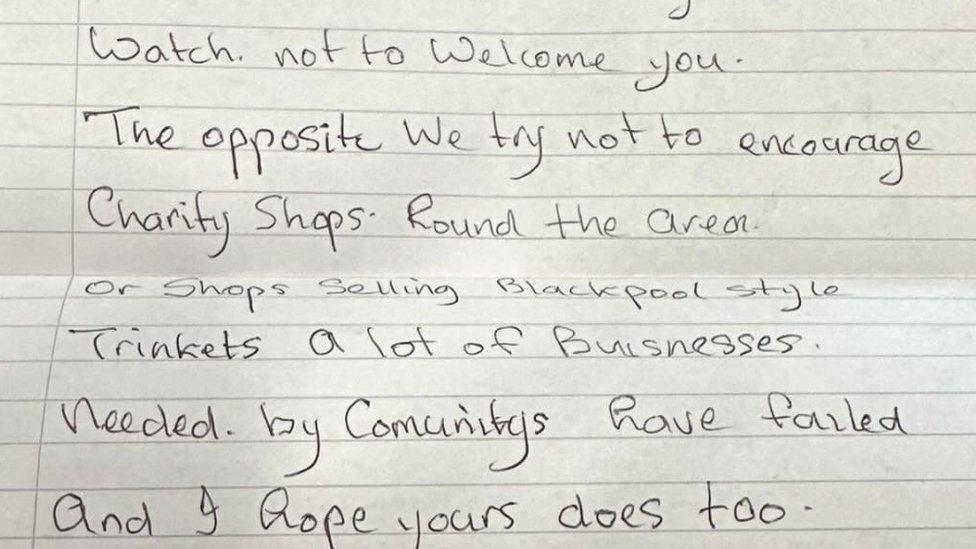 Watch. not to Welcome you.
The opposite We try not to encourage
Charity Shops. Round the area.
Or Shops Selling Blackpool style
Trinkets A lot of Buisnesses.
Needed. by Comunitys have failed
And I hope yours does too.